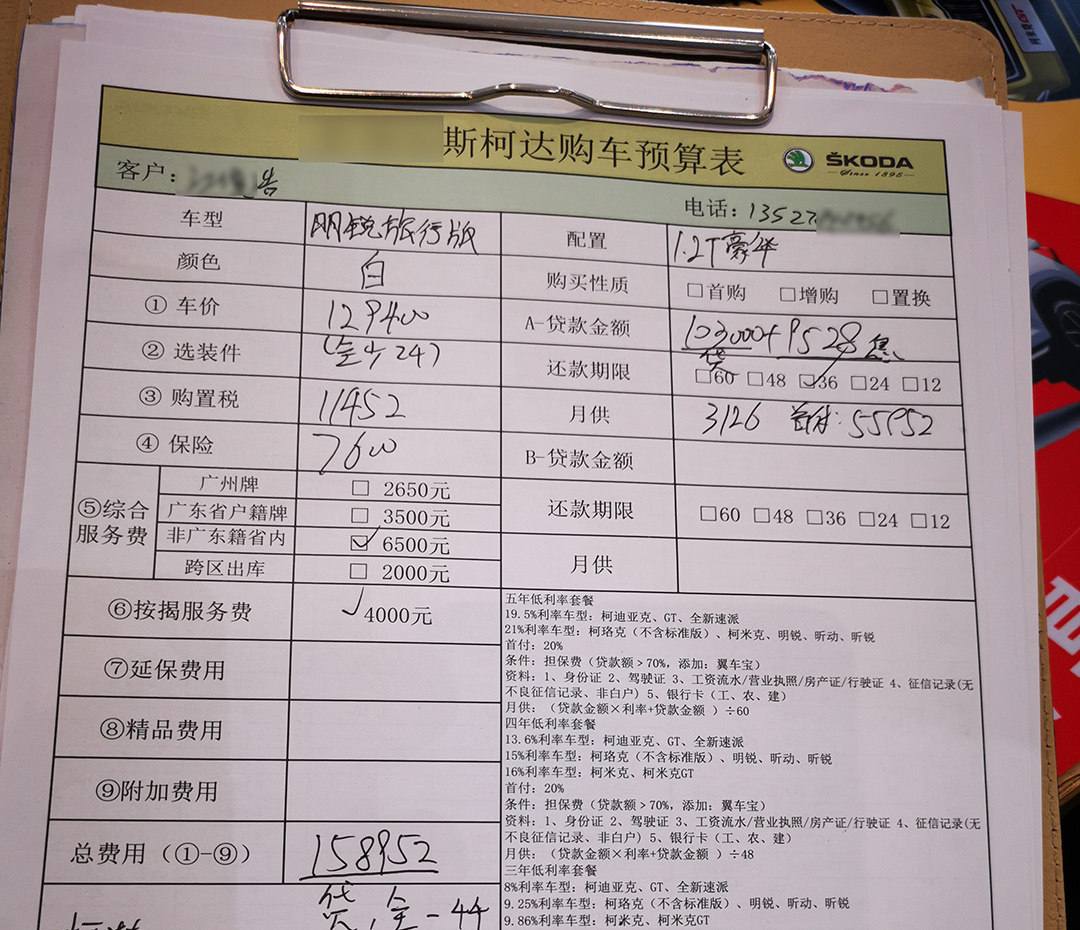 斯柯达购车预算表 ŠKODA
Since 1895
客户： 告 电话：13527
车型 明锐旅行版 配置 1.2T豪华
颜色 白 购买性质 □首购 □增购 □置换
①车价 129400 A-贷款金额 103000+9528息
贷
②选装件 (全少24) 还款期限 □60 □48 ☑36 □24 □12
③购置税 11452 月供 3126 首付：55952
④保险 7600 B-贷款金额
⑤综合服务费 广州牌 □ 2650元 还款期限 □60 □48 □36 □24 □12
广东省户籍牌 □ 3500元
非广东籍省内 ☑ 6500元
跨区出库 □ 2000元 月供
⑥按揭服务费 ✓4000元
⑦延保费用
⑧精品费用
⑨附加费用
总费用（①-⑨） 158952
贷，全-44
五年低利率套餐
19.5%利率车型：柯迪亚克、GT、全新速派
21%利率车型：柯珞克（不含标准版）、柯米克、明锐、昕动、昕锐
首付：20%
条件：担保费（贷款额＞70%，添加：翼车宝）
资料：1、身份证 2、驾驶证 3、工资流水/营业执照/房产证/行驶证 4、征信记录(无
不良征信记录、非白户) 5、银行卡（工、农、建）
月供：（贷款金额×利率+贷款金额 ）÷60
四年低利率套餐
13.6%利率车型：柯迪亚克、GT、全新速派
15%利率车型：柯珞克（不含标准版）、明锐、昕动、昕锐
16%利率车型：柯米克、柯米克GT
首付：20%
条件：担保费（贷款额＞70%，添加：翼车宝）
资料：1、身份证 2、驾驶证 3、工资流水/营业执照/房产证/行驶证 4、征信记录(无
不良征信记录、非白户) 5、银行卡（工、农、建）
月供：（贷款金额×利率+贷款金额 ）÷48
三年低利率套餐
8%利率车型：柯迪亚克、GT、全新速派
9.25%利率车型：柯珞克（不含标准版）、明锐、昕动、昕锐
9.86%利率车型：柯米克、柯米克GT